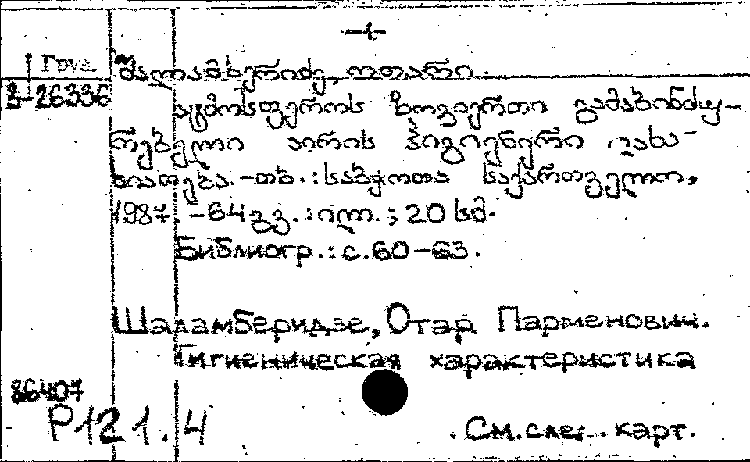 -1-
Груз.
შალამბერიძე, ოთარი
3-26336
ატმოსფეროს ზოგიერთი გამაბინძუ-
რებელი აირის ჰიგიენური დახა-
სიათება. -თბ. : საბჭოთა საქართველო,
1987. -64გვ. : ილ. ; 20 სმ.
Библиогр.: с.60-63.
Шаламберидзе, Отар Парменович.
Гигиеническая характеристика
86407
P121.4
См. след. карт.